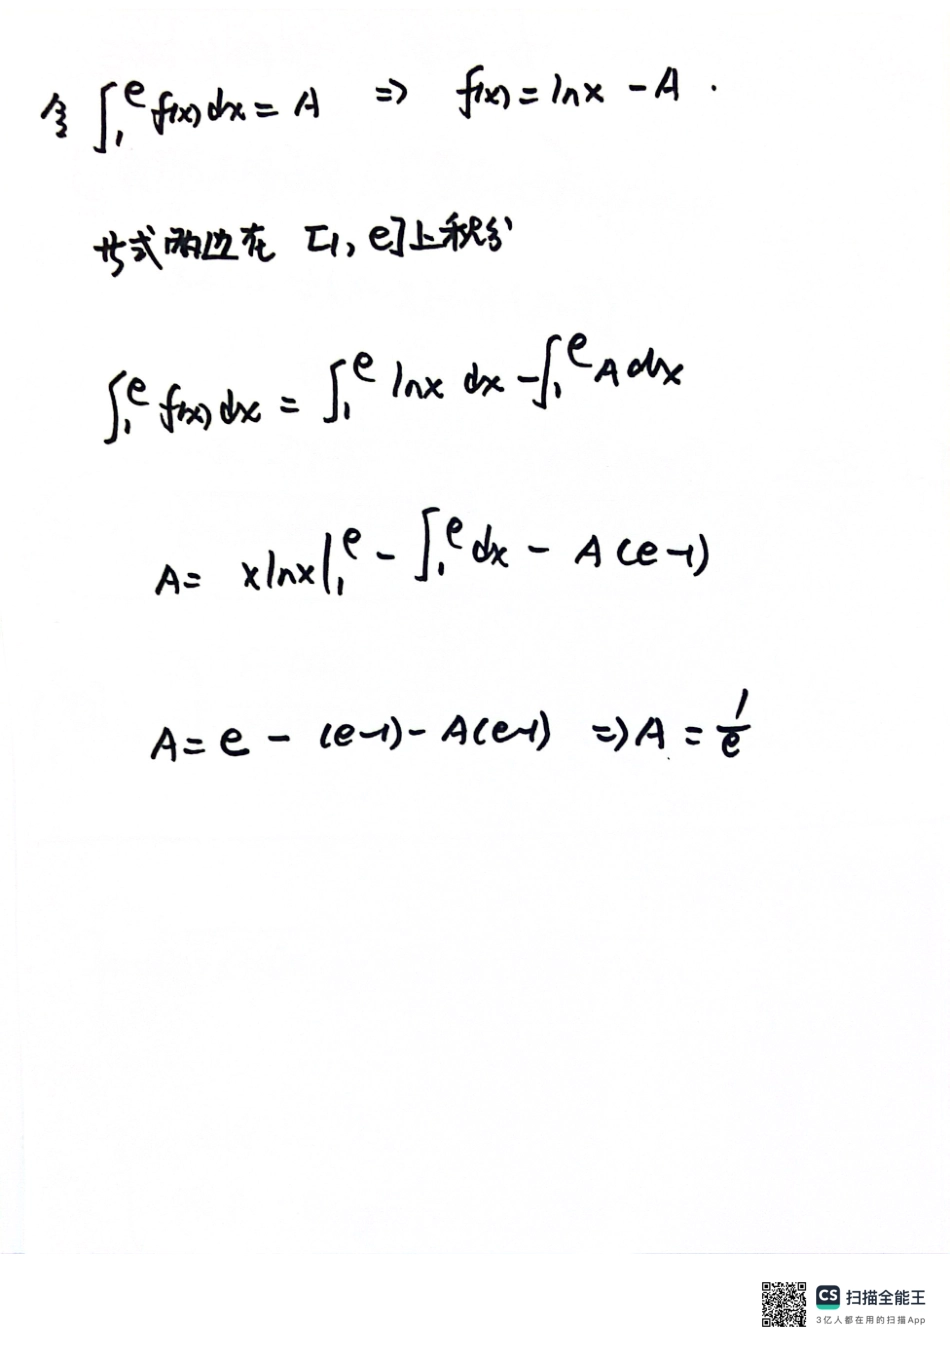 令 ∫₁ᵉ f(x)dx = A ⇒ f(x) = lnx - A .
等式两边在 [1, e]上积分
∫₁ᵉ f(x)dx = ∫₁ᵉ lnx dx - ∫₁ᵉ A dx
A = xlnx|₁ᵉ - ∫₁ᵉ dx - A(e-1)
A = e - (e-1) - A(e-1) ⇒ A = 1/e
CS 扫描全能王
3亿人都在用的扫描App